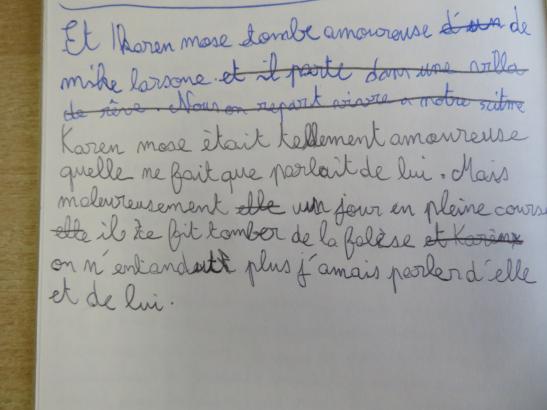 Et Karen mose tombe amoureuse d'un de
mike larsone et il parte dans une villa
de rêve. Nous on repart vivre a notre ritme
Karen mose ètait tellement amoureuse
quelle ne fait que parlait de lui. Mais
maleureusement elle un jour en pleine course
elle il le fit tomber de la falèse et Karen
on n'entandit plus j'amais parler d'elle
et de lui.